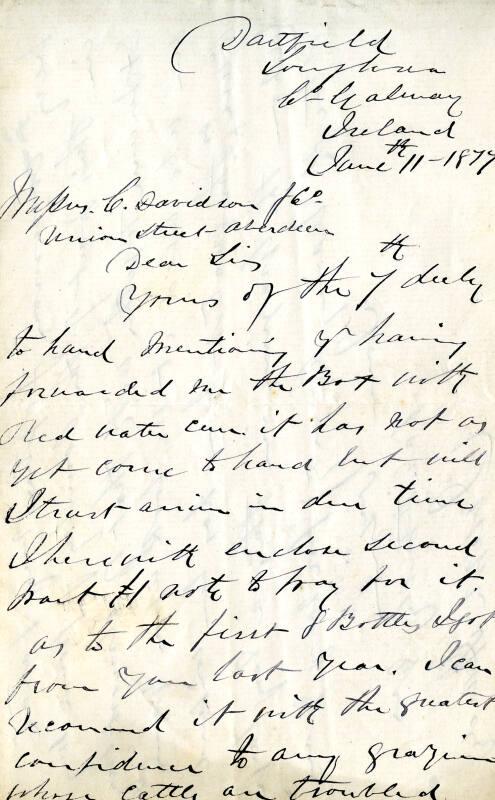 Dartfield
Loughrea
Co Galway
Ireland
June 11th - 1877
Messrs. C. Davidson & Co.
Union Street Aberdeen
Dear Sirs
Yours of the 7th duly
to hand mentioning yr having
forwarded me the Box with
Red water cure. it has not as
yet come to hand but will
I trust arrive in due time
I herewith enclose second
part £1 note to pay for it.
as to the first 8 Bottles I got
from you last year. I can
recommend it with the greatest
confidence to any grazier
whose cattle are troubled